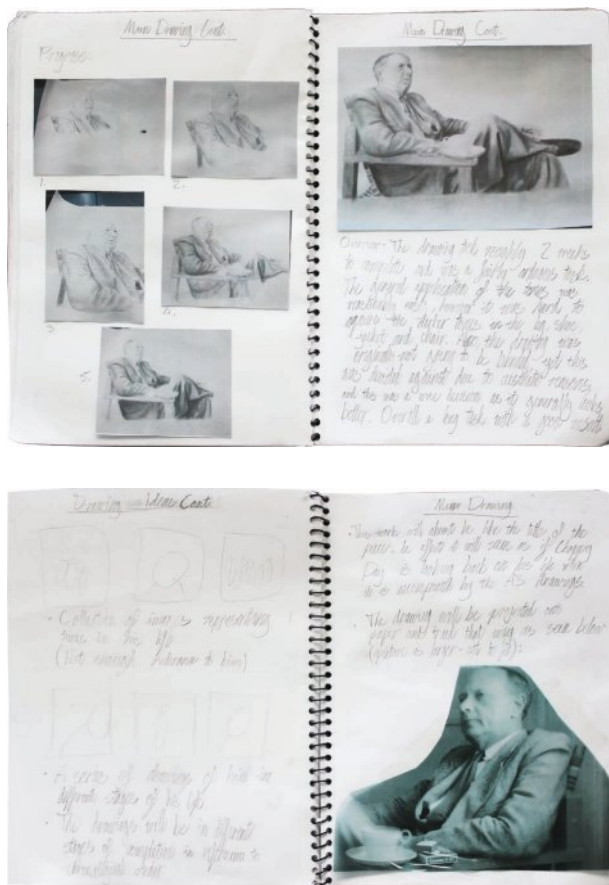 Main Drawing Cont.
Progress:
1.
2.
3.
4.
5.
Main Drawing Cont.
Overview - The drawing took roughly 2 weeks
to complete and was a fairly arduous task.
The general application of the tones was
reasonably easy, however it was hard to
acquire the darker tones in the eg. shoe,
jacket and chair. Also, the drawing was
originally not going to be blended, yet this
was decided against due to aesthetic reasons
and this was a wise decision as it generally looks
better. Overall a long task with a good
Drawing Ideas Cont.
- Collection of images representing
times in his life
(Not enough to him)
- A series of drawings of him in
different stages of his life
- The drawings will be in different
stages of completion in reference to
chronological order
Main Drawing
- This work will be like the title of the
piece. In effect it will seem as if
Day is looking back at his life when
by the AS drawings
- The drawing will be projected onto
paper and traced that way as seen below